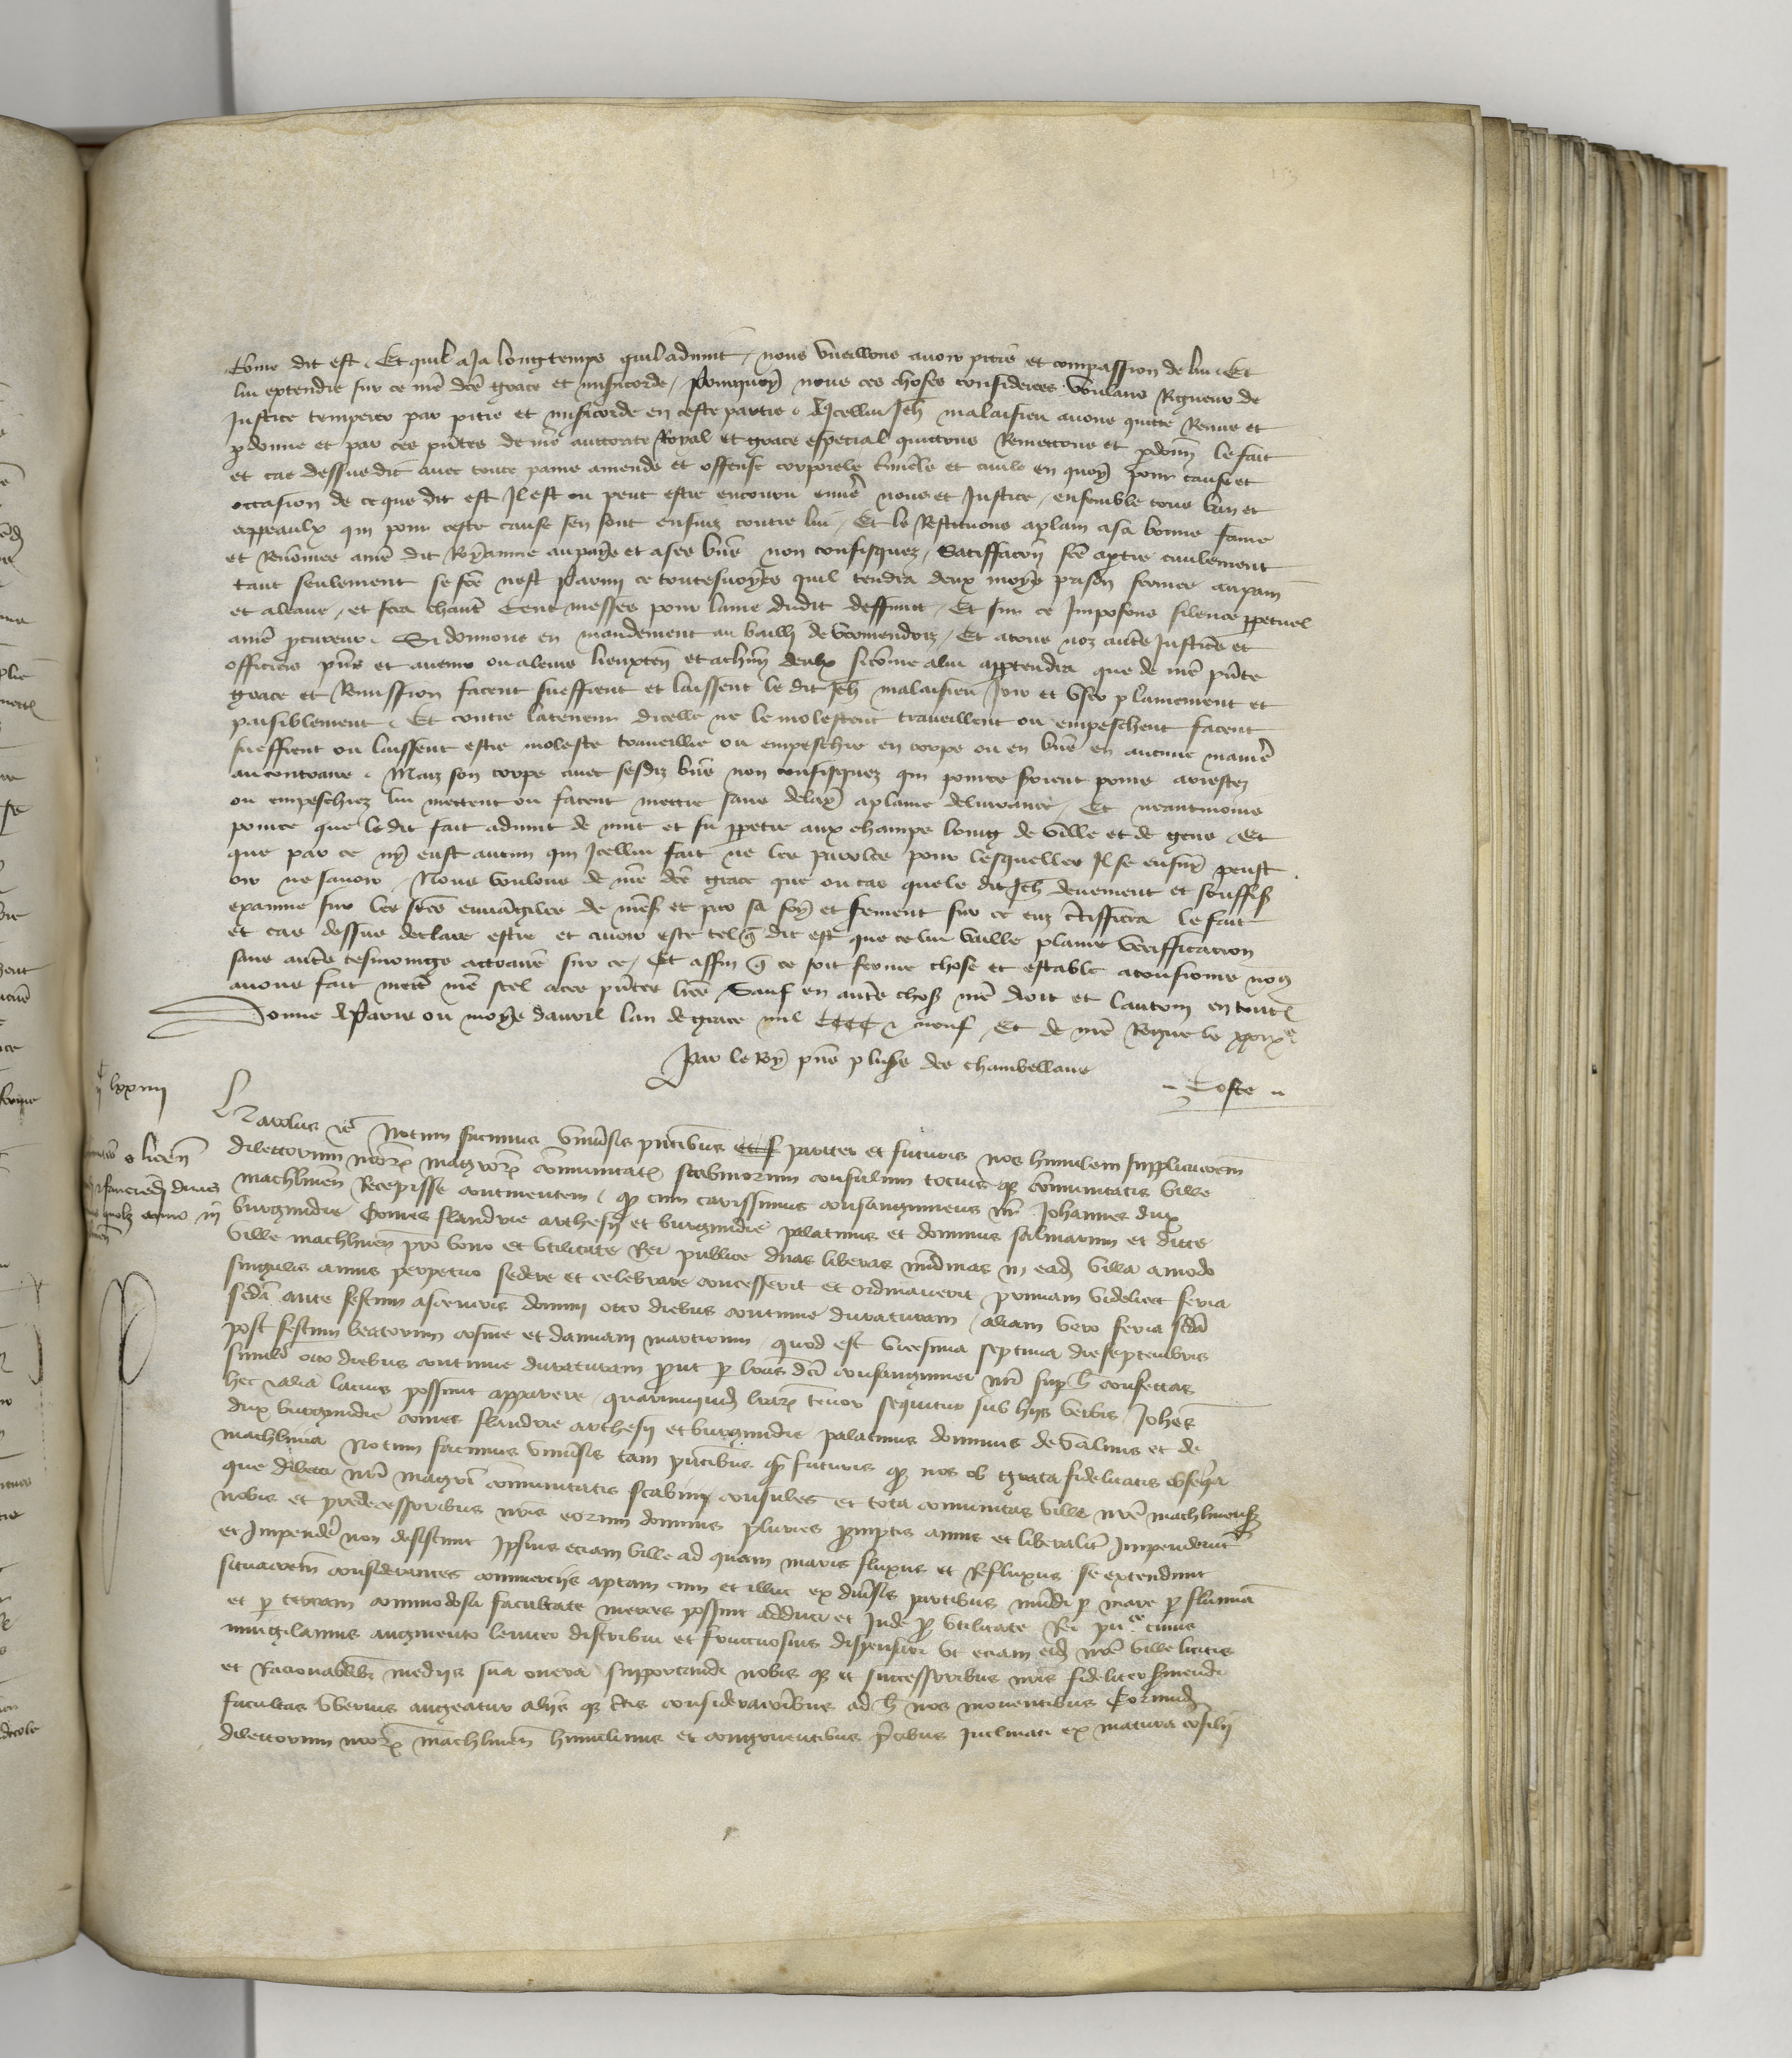 Come dit est. Et quil a Ja long temps quil advint, nous vueillons avoir pitie et compassion de lui. Et
lui extendre sur ce nre dce grace et misericorde, Pourquoy nous ces choses considerees voulans Rigueur de
Justice temperer par pitie et misericorde en ceste partie. A Icellui Jeh malaisieu avons quitte Remis et
pdonne et par ces pntes de nre auctorite Royal et grace especial quictons Remettons et pdonn le fait
et cas dessusdit avec toute paine amende et offense corporele Criminele et civile en quoy pour cause et
occasion de ce que dit est Il est ou peut estre encouru envers nous et Justice, ensemble tous ban et
appeaulx qui pour ceste cause sen sont ensuiz contre lui, Et le Restituons aplain a sa bonne fame
et Renommee a nre dit Royaume au pays et a ses biens non confisquez, Satisfaccon fce a ptie civilement
tant seulement se fce nest Parmi ce toutesvoyes quil tendra deux moys prison fermee au pain
et a leaue, et fera chanter Cent messes pour lame dudit deffunt, Et sur ce Imposons silence ppetuel
a nre procureur. Si donnons en mandement au bailli de Vermendois, Et a tous noz autres Justiciers et
officiers pns et avenir ou a leurs lieuxten et a chun deulx si comme a lui apptendra que de nre pnte
grace et Remission facent sueffrent et laissent le dit Jeh malaisieu Joir et User plainement et
paisiblement. Et contre la teneur dicelle ne le molestent travaillent ou empeschent facent
sueffrent ou laissent estre moleste travaillie ou empeschie en corps ou en biens en aucune maniere
au contraire. Maiz son corps avec sesdiz biens non confisquez qui pource seroient prins arrestez
ou empeschiez lui mettent ou facent mettre sans delay a plaine delivrance, Et neantmoins
pource que le dit fait advint de nuit et fu ppetre aux champs loing de ville et de gens, Et
que par ce ny eust aucun qui Icellui fait ne les paroles pour lesquelles Il se ensuy peust
oir ne savoir. Nous voulons de nre dce grace que ou cas que le dit Jeh deuement et souffis
examine sur les stes euvangiles de et par sa foy et serment sur ce certiffiera le fait
et cas dessus declare estre et avoir este tel q dit est que ce lui vaille plaine veriffication
sans autre tesmoingnage sur ce, Et affin q ce soit ferme chose et estable a tousiours nous
avons fait mettre nre scel a ces pntes lres, Sauf en autres choses nre droit et lautrui en toutes
Donne A Paris ou moys davril lan de grace mil CCCC & neuf, Et de nre Regne le xxixe
Par le Roy pns plusrs des chambellans
Coste
lxxiiii
Karolus &c Notum facimus Universis presentibus pariter et futuris nos humilem supplicacionem
dilectorum nrorum magrorum communitatis scabinorum consulum tocius que communitatis ville
machlinen Recepisse continentem, quod cum carissimus consanguineus nr Johannes dux
burgundie Comes flandrie arthesij et burgundie palatinus et dominus salinarum et dicte
ville machlinen pro bono et utilitate Rei publice duas liberas nundinas in ead villa amodo
singulis annis perpetuo sedere et celebrare concesserit et ordinaverit primam videlicet feria
scda ante festum ascensionis domini octo diebus continue duraturam, aliam vero feria scda
post festum beatorum cosme et damiani martirum, quod est vicesima septima die septembris
similr octo diebus continue duraturam prout p lras dci consanguinei nri sup h confectas
hec & alia lacius possunt apparere, quarumquid lrarum tenor sequitur sub hijs verbis Johes
dux burgundie comes flandrie arthesij et burgundie palatinus dominus de salinis et de
machlinia Notum facimus Universis tam presentibus quam futuris quod nos ob grata fidelitatis obsequia
que dilecti nri magri communitatis scabini consules et tota communitas ville nre machlinens
nobis et predecessoribus nris eorum dominis pluries promptis animis et liberaliter Impenderunt
et Impendere non desistunt Ipsius eciam ville ad quam maris fluxus et Refluxus se extendunt
situacionem considerantes commercijs aptam cum et illuc ex diversis partibus mundi p mare p flumina
et p terram commodosa facultate merces possint adduci et Inde pro utilitate Rei pulce cuius
Invigilamus augmento leniter distribui et fructuosius dispensari ut eciam eid nre ville licitis
et Racionabilibus medijs sua onera supportandi nobis que et successoribus nris fideliter serviendi
facultas uberius augeatur alijs que certis consideracionibus ad h nos moventibus Eorumd
dilectorum nrorum machlinen humilimis et congruentibus precibus Inclinati ex matura consilij